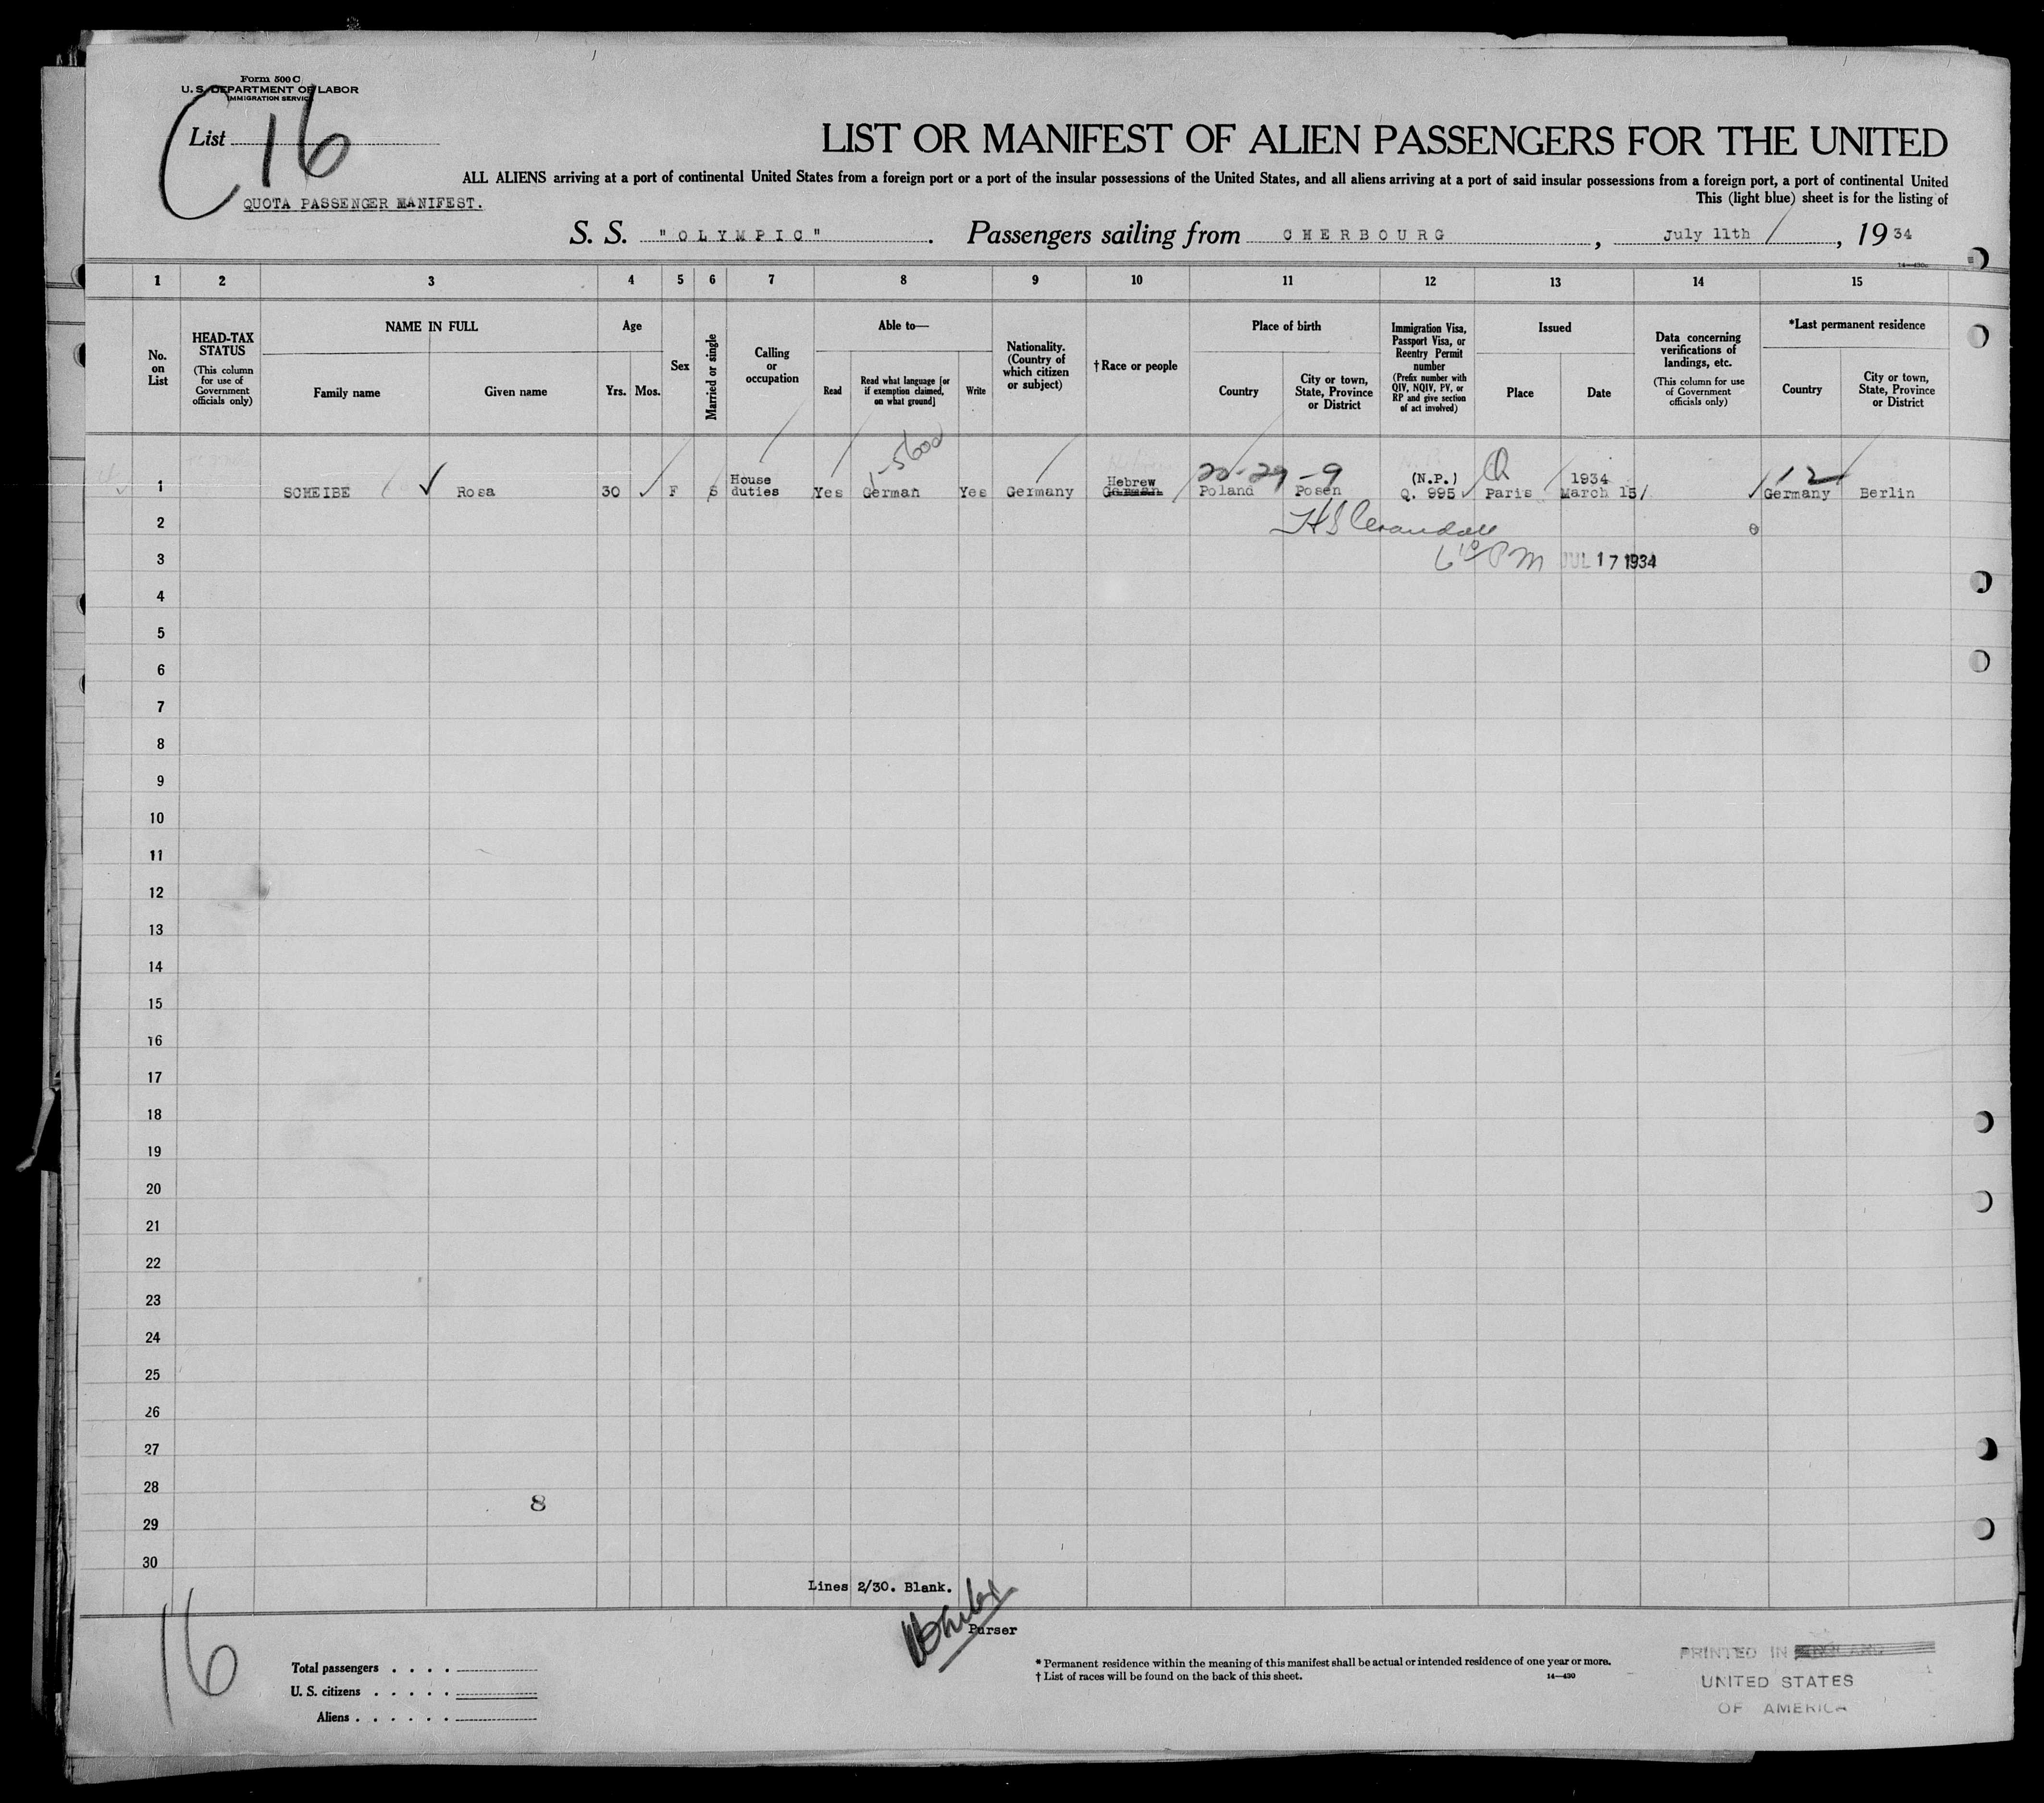 Form 500 C
U. S. DEPARTMENT OF LABOR
IMMIGRATION SERVICE
List 16
LIST OR MANIFEST OF ALIEN PASSENGERS FOR THE UNITED
ALL ALIENS arriving at a port of continental United States from a foreign port or a port of the insular possessions of the United States, and all aliens arriving at a port of said insular possessions from a foreign port, a port of continental United
This (light blue) sheet is for the listing of
QUOTA PASSENGER MANIFEST.
S. S. "OLYMPIC". Passengers sailing from CHERBOURG, July 11th, 1934
14—430c
1 2 3 4 5 6 7 8 9 10 11 12 13 14 15
No. on List
HEAD-TAX STATUS
(This column for use of Government officials only)
NAME IN FULL
Family name
Given name
Age
Yrs.
Mos.
Sex
Married or single
Calling or occupation
Able to—
Read
Read what language [or if exemption claimed, on what ground]
Write
Nationality. (Country of which citizen or subject)
†Race or people
Place of birth
Country
City or town, State, Province or District
Immigration Visa, Passport Visa, or Reentry Permit number
(Prefix number with QIV, NQIV, PV, or RP and give section of act involved)
Issued
Place
Date
Data concerning verifications of landings, etc.
(This column for use of Government officials only)
*Last permanent residence
Country
City or town, State, Province or District
1-5600
House Hebrew 20-29-9 (N.P.) Q 1934 12
1 SCHEIBE Rosa 30 F S duties Yes German Yes Germany German Poland Posen Q. 995 Paris March 15 Germany Berlin
2 H S Crandall
3 6 10 PM JUL 17 1934
4
5
6
7
8
9
10
11
12
13
14
15
16
17
18
19
20
21
22
23
24
25
26
27
28
8
29
30
Lines 2/30. Blank.
Purser
16
Total passengers . . . .
U. S. citizens . . . . .
Aliens . . . . . .
* Permanent residence within the meaning of this manifest shall be actual or intended residence of one year or more.
† List of races will be found on the back of this sheet.
14—430
PRINTED IN ENGLAND
UNITED STATES
OF AMERICA